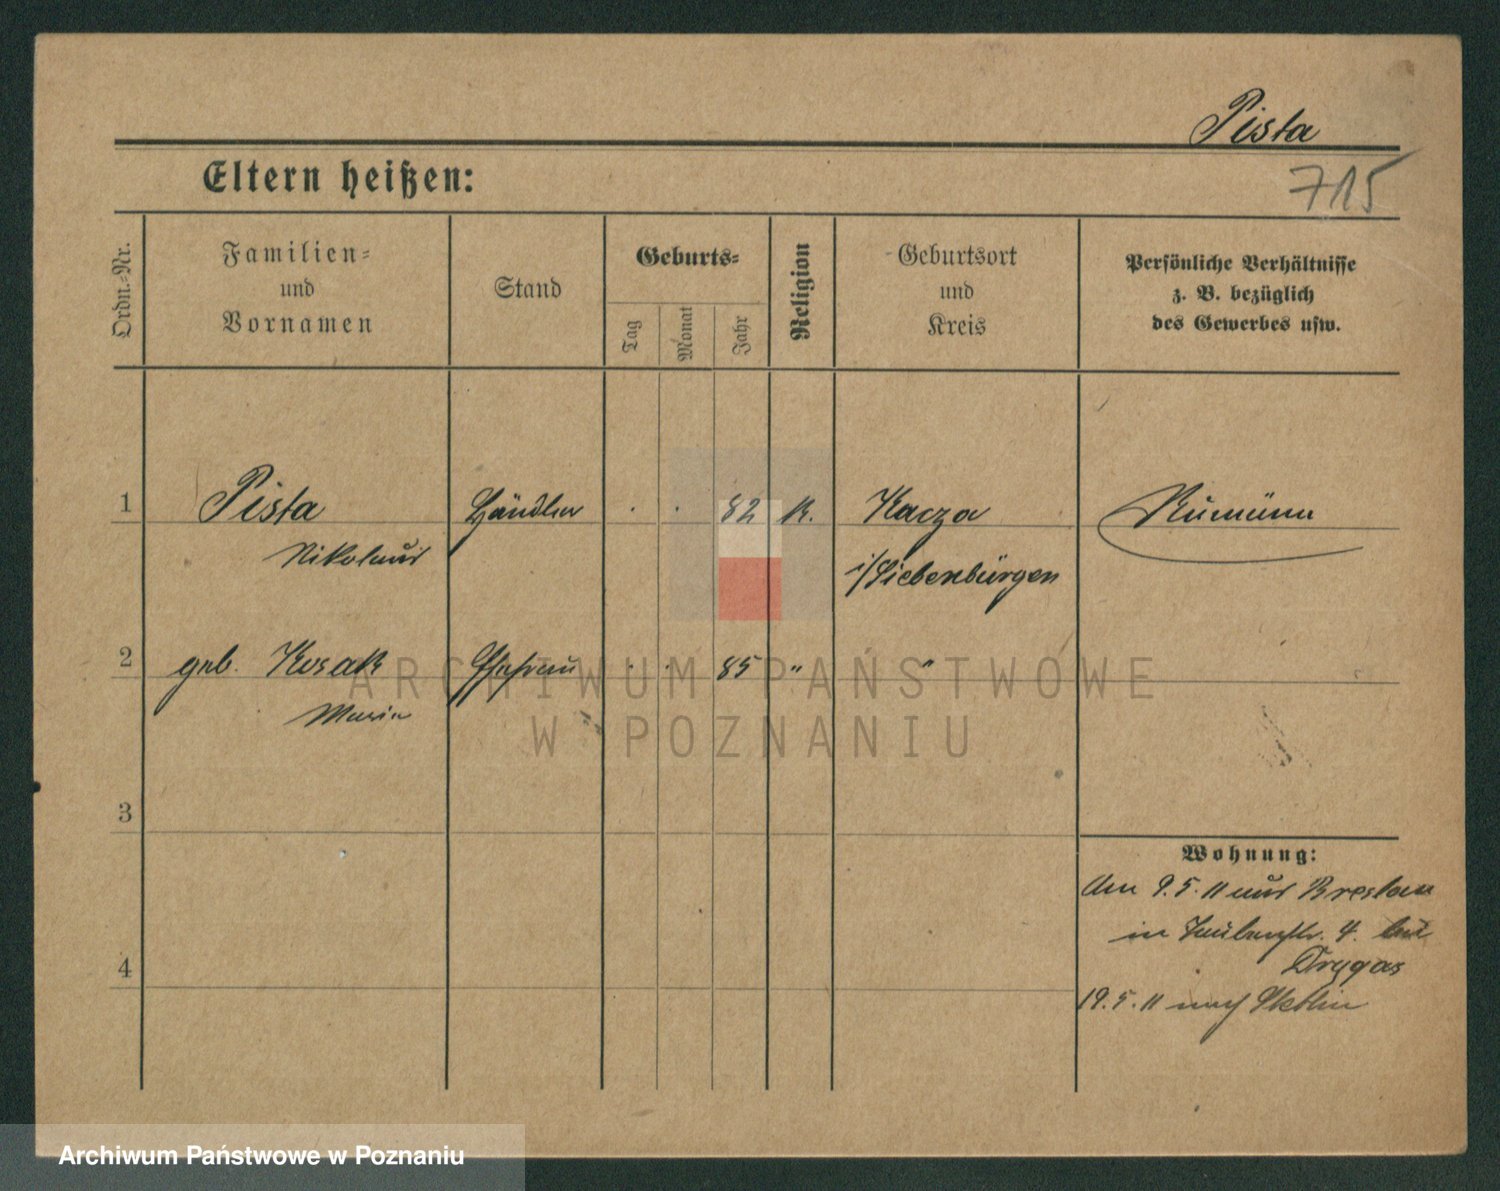 Pista
715
Eltern heißen:
Ordn.-Nr.
Familien-
und
Vornamen
Stand
Geburts-
Tag
Monat
Jahr
Religion
Geburtsort
und
Kreis
Persönliche Verhältnisse
z. B. bezüglich
des Gewerbes usw.
1 Pista Händler . . 82 K. Kacza Rumäne
Nikolaus i/Siebenbürgen
2 geb. Kosak Ehefrau . . 85 " "
Maria
3
4
Wohnung:
Am 9.5.11 aus Breslau
in 4. bei
Drygas
19.5.11 nach Stettin
ARCHIWUM PAŃSTWOWE
W POZNANIU
Archiwum Państwowe w Poznaniu